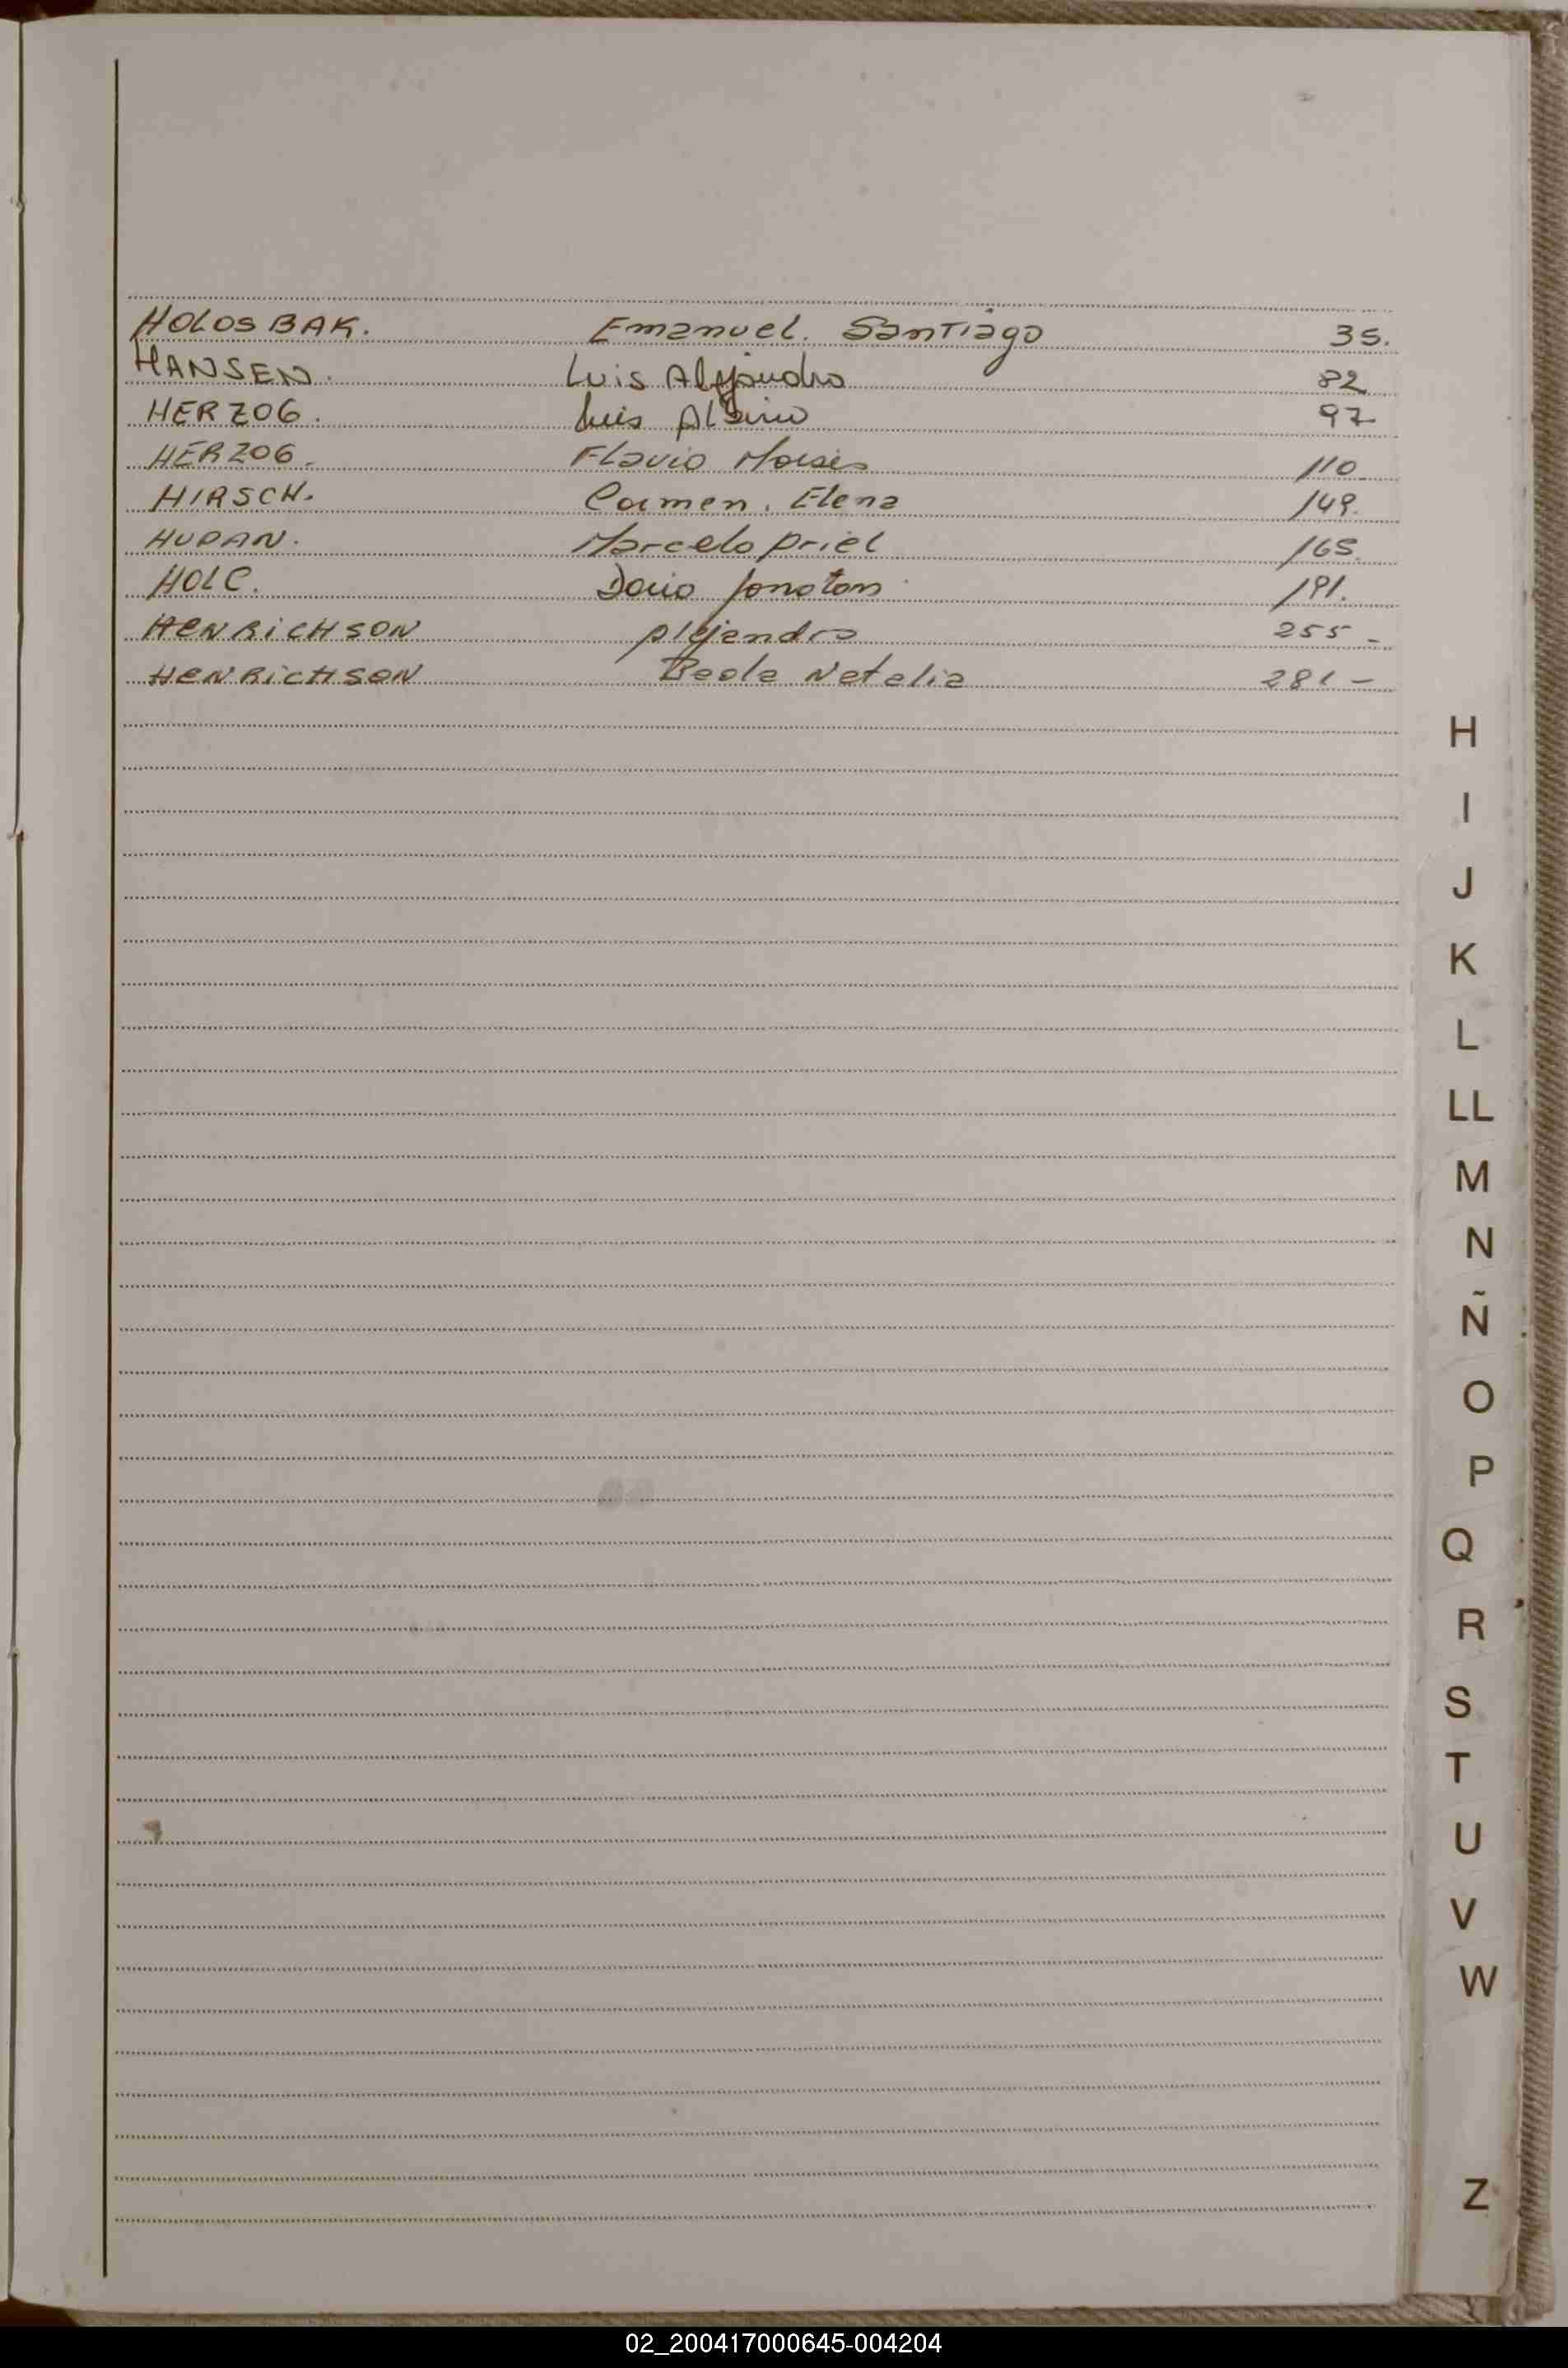 HOLOSBAK. Emanuel. Santiago 35.
HANSEN. Luis Alejandro 82
HERZOG. Luis 97
HERZOG. Flavio Moises 110
HIRSCH. Carmen. Elena 149.
HUPAN. Marcelo Ariel 165.
HOLC. Dario Jonatan 191.
HENRICHSON Alejandro 255-
HENRICHSON Natalia 281-
H
I
J
K
L
LL
M
N
Ñ
O
P
Q
R
S
T
U
V
W
Z
02_200417000645-004204